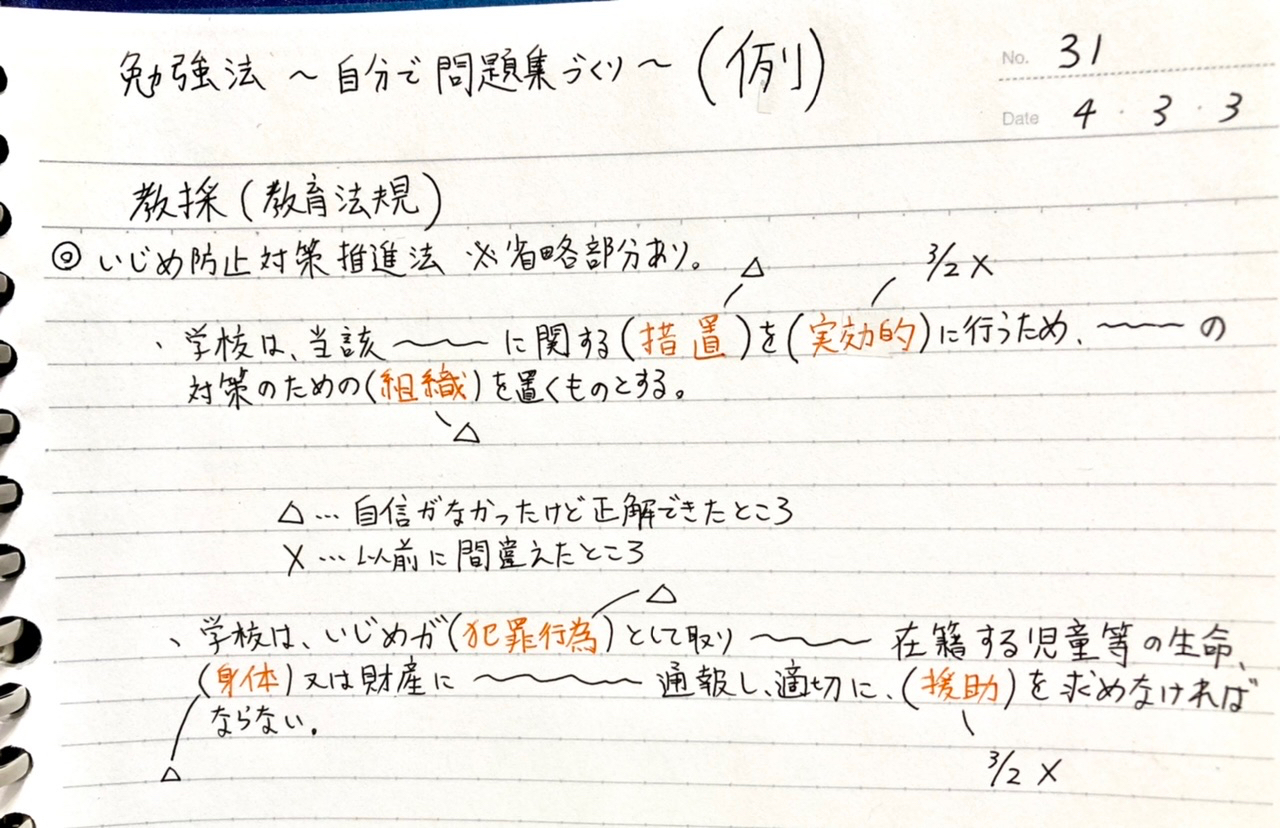 勉強法 ～自分で問題集づくり～ (例)
No. 31
Date 4・3・3
教採(教育法規)
◎ いじめ防止対策推進法 ※省略部分あり。
△ 3/2 X
、学校は、当該〜〜〜に関する(措置)を(実効的)に行うため、〜〜〜の
対策のための(組織)を置くものとする。
△
△…自信がなかったけど正解できたところ
X…以前に間違えたところ
△
、学校は、いじめが(犯罪行為)として取り〜〜〜在籍する児童等の生命、
(身体)又は財産に〜〜〜通報し、適切に、(援助)を求めなければ
ならない。
△ 3/2 X